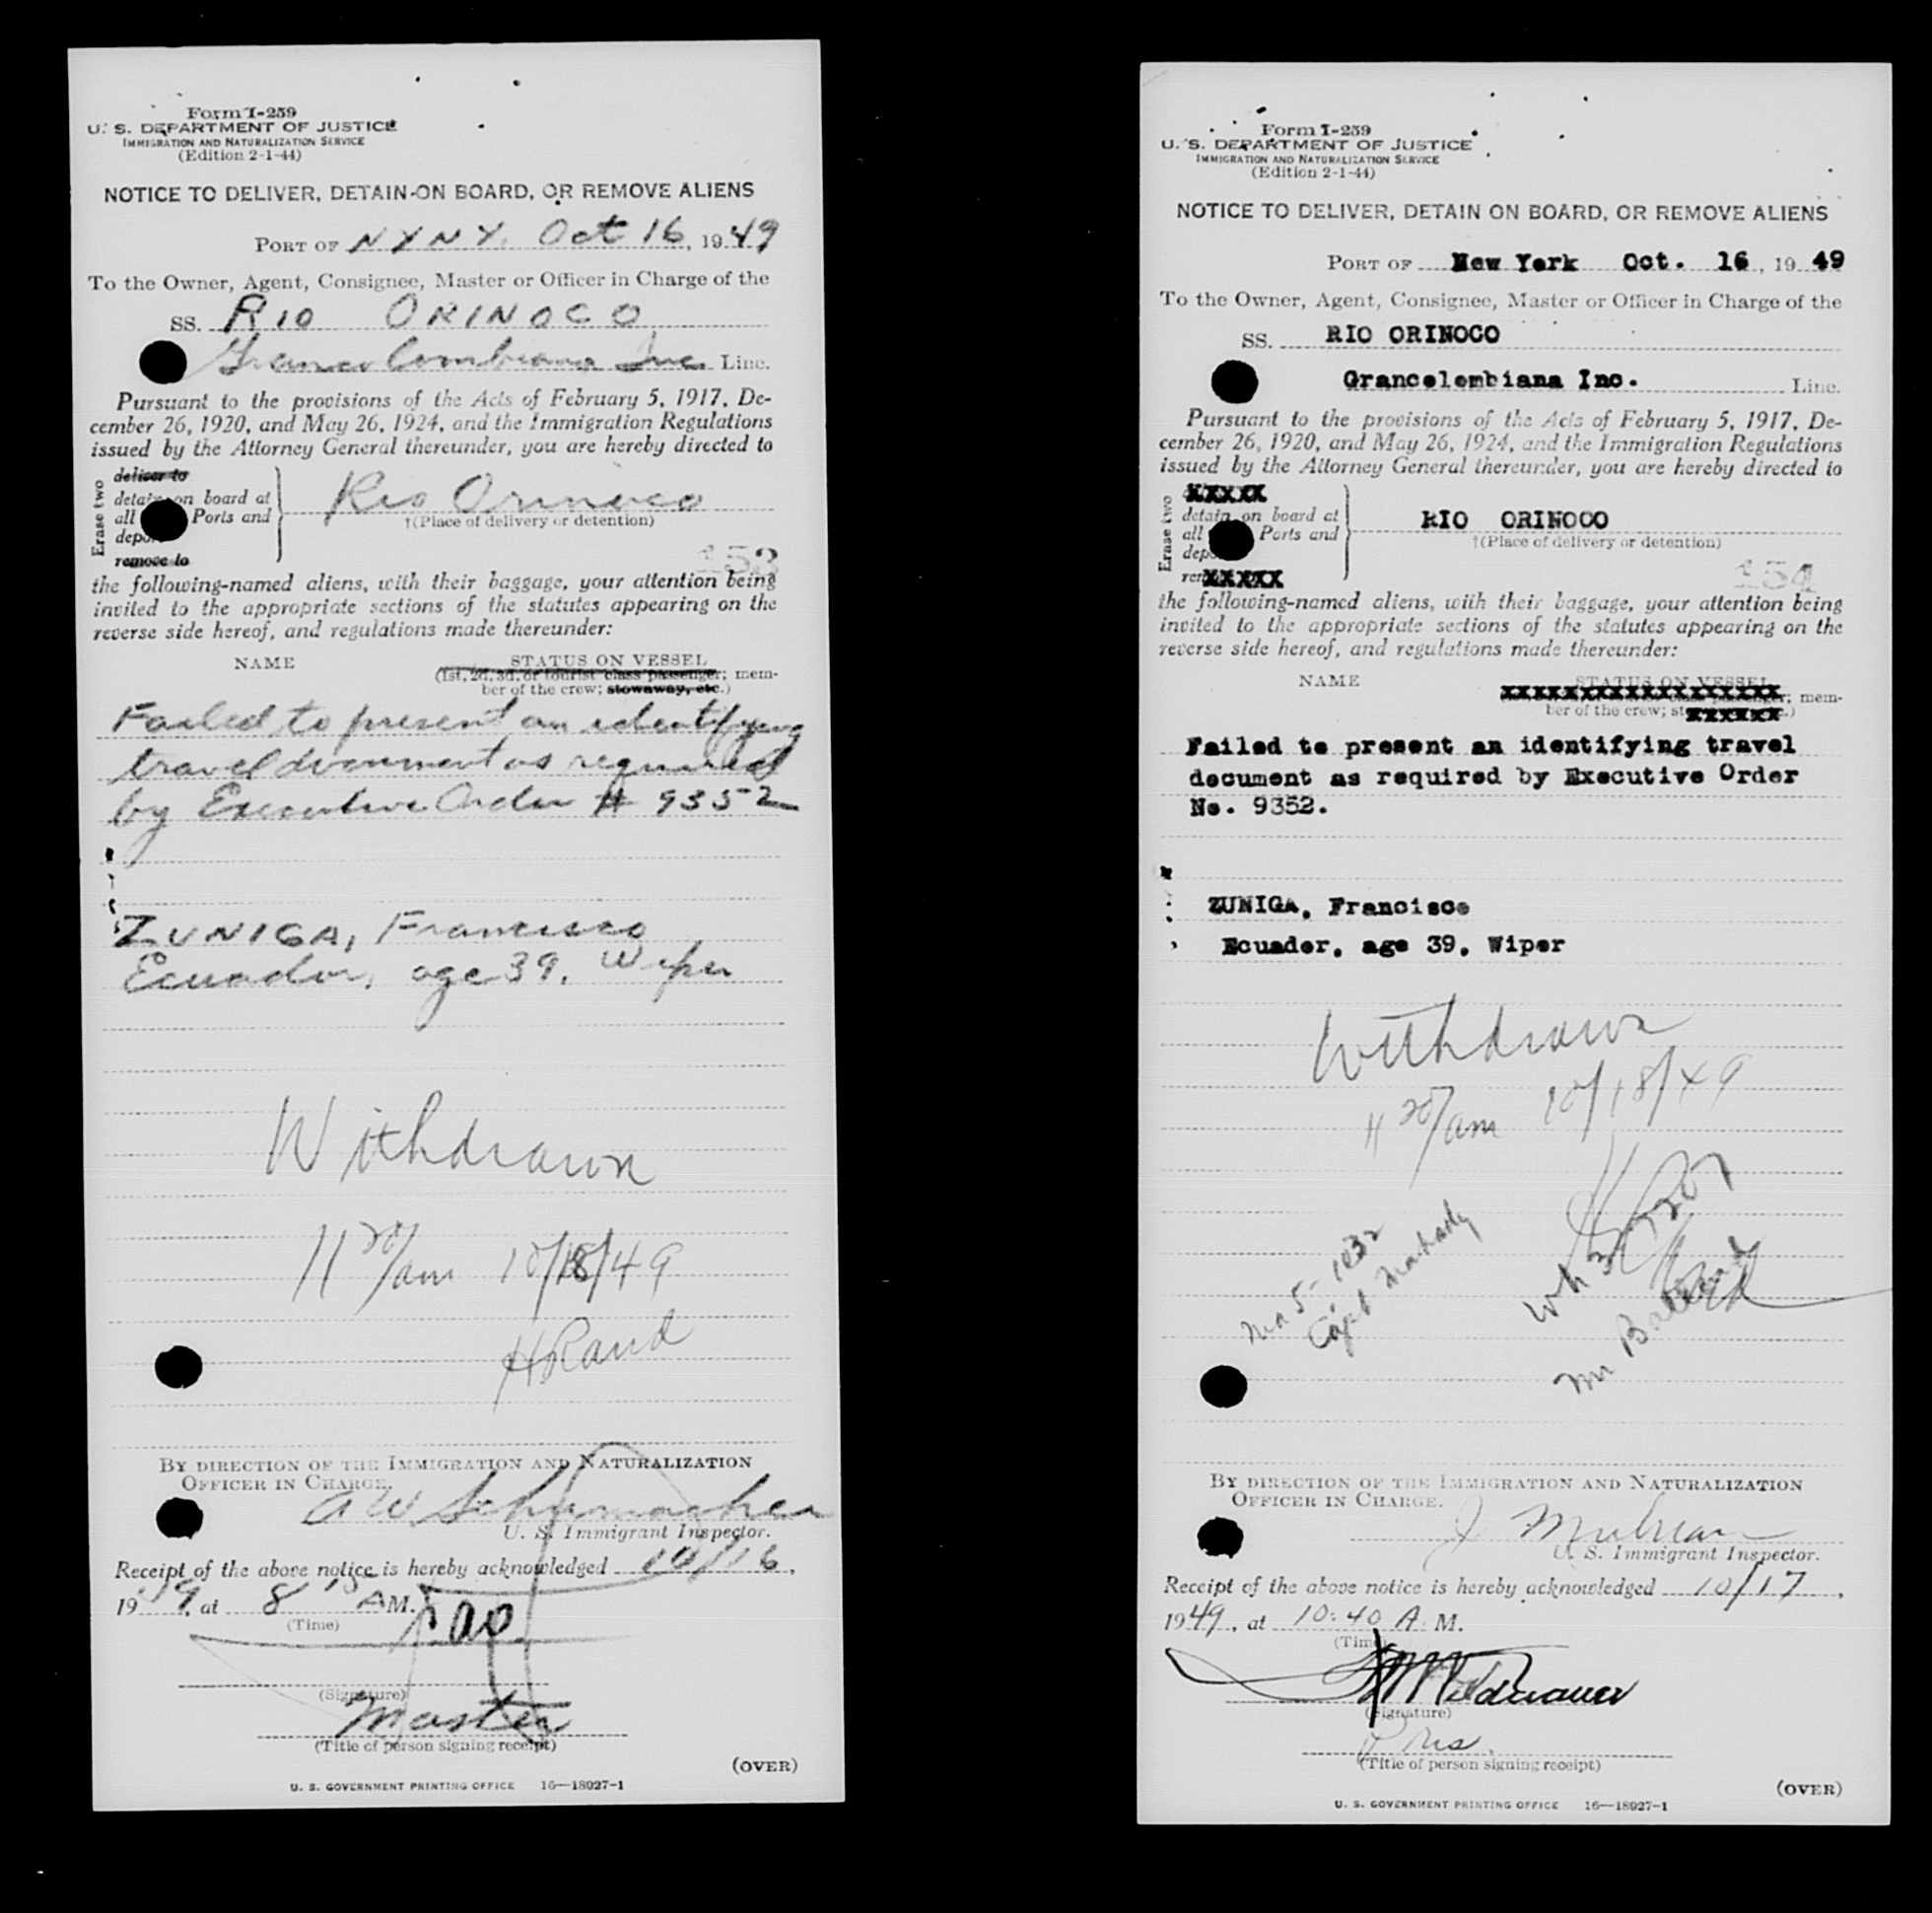 Form I-259
U. S. DEPARTMENT OF JUSTICE
IMMIGRATION AND NATURALIZATION SERVICE
(Edition 2-1-44)
NOTICE TO DELIVER, DETAIN ON BOARD, OR REMOVE ALIENS
PORT OF NYNY. Oct 16, 1949
To the Owner, Agent, Consignee, Master or Officer in Charge of the
SS. RIO ORINOCO
Inc. Line.
Pursuant to the provisions of the Acts of February 5, 1917, De-
cember 26, 1920, and May 26, 1924, and the Immigration Regulations
issued by the Attorney General thereunder, you are hereby directed to
Erase two
deliver to
detain on board at
all Ports and
remove to
Rio Orinoco
†(Place of delivery or detention)
153
the following-named aliens, with their baggage, your attention being
invited to the appropriate sections of the statutes appearing on the
reverse side hereof, and regulations made thereunder:
NAME STATUS ON VESSEL
(1st, 2d, 3d, or tourist class passenger; mem-
ber of the crew; stowaway, etc.)
Failed to present an identifying
travel document as required
by Executive Order # 9352
ZUNIGA, Francisco
Ecuador, age 39, Wiper
Withdrawn
11 20/am 10/18/49
HRand
BY DIRECTION OF THE IMMIGRATION AND NATURALIZATION
OFFICER IN CHARGE.
A W Schumacher
U. S. Immigrant Inspector.
Receipt of the above notice is hereby acknowledged 10/16,
1949, at 8 15 A M.
(Time)
(Signature)
Master
(Title of person signing receipt)
(OVER)
U. S. GOVERNMENT PRINTING OFFICE 16—18027-1
Form I-259
U. S. DEPARTMENT OF JUSTICE
IMMIGRATION AND NATURALIZATION SERVICE
(Edition 2-1-44)
NOTICE TO DELIVER, DETAIN ON BOARD, OR REMOVE ALIENS
PORT OF New York Oct. 16, 1949
To the Owner, Agent, Consignee, Master or Officer in Charge of the
SS. RIO ORINOCO
Grancolombiana Inc. Line.
Pursuant to the provisions of the Acts of February 5, 1917, De-
cember 26, 1920, and May 26, 1924, and the Immigration Regulations
issued by the Attorney General thereunder, you are hereby directed to
Erase two
XXXXX
detain on board at
all Ports and
XXXXX
RIO ORINOCO
†(Place of delivery or detention)
154
the following-named aliens, with their baggage, your attention being
invited to the appropriate sections of the statutes appearing on the
reverse side hereof, and regulations made thereunder:
NAME STATUS ON VESSEL
; mem-
ber of the crew;
Failed to present an identifying travel
document as required by Executive Order
No. 9352.
ZUNIGA, Francisco
Ecuador, age 39, Wiper
Withdrawn
11 20/am 10/18/49
BY DIRECTION OF THE IMMIGRATION AND NATURALIZATION
OFFICER IN CHARGE.
U. S. Immigrant Inspector.
Receipt of the above notice is hereby acknowledged 10/17,
1949, at 10:40 A. M.
(Time)
(Signature)
(Title of person signing receipt)
(OVER)
U. S. GOVERNMENT PRINTING OFFICE 16—18027-1